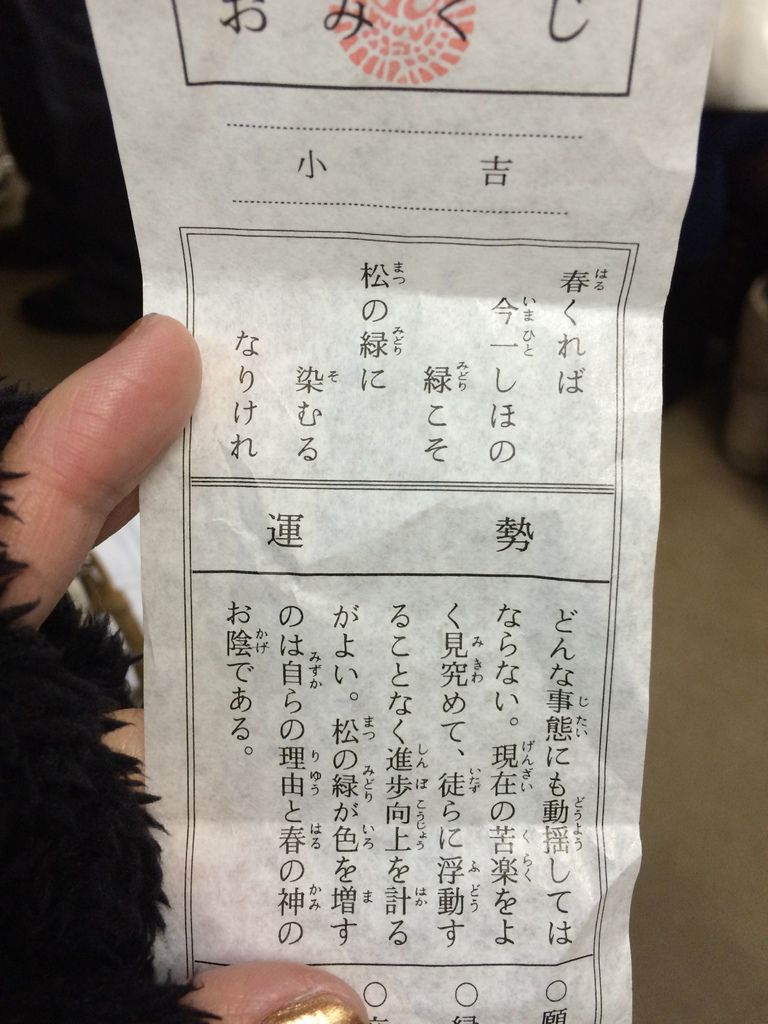 おみくじ
小吉
春くれば
今一しほの
緑こそ
松の緑に
染むる
なりけれ
運勢
どんな事態にも動揺しては
ならない。現在の苦楽をよ
く見究めて、徒らに浮動す
ることなく進歩向上を計る
がよい。松の緑が色を増す
のは自らの理由と春の神の
お陰である。
○願
○
○